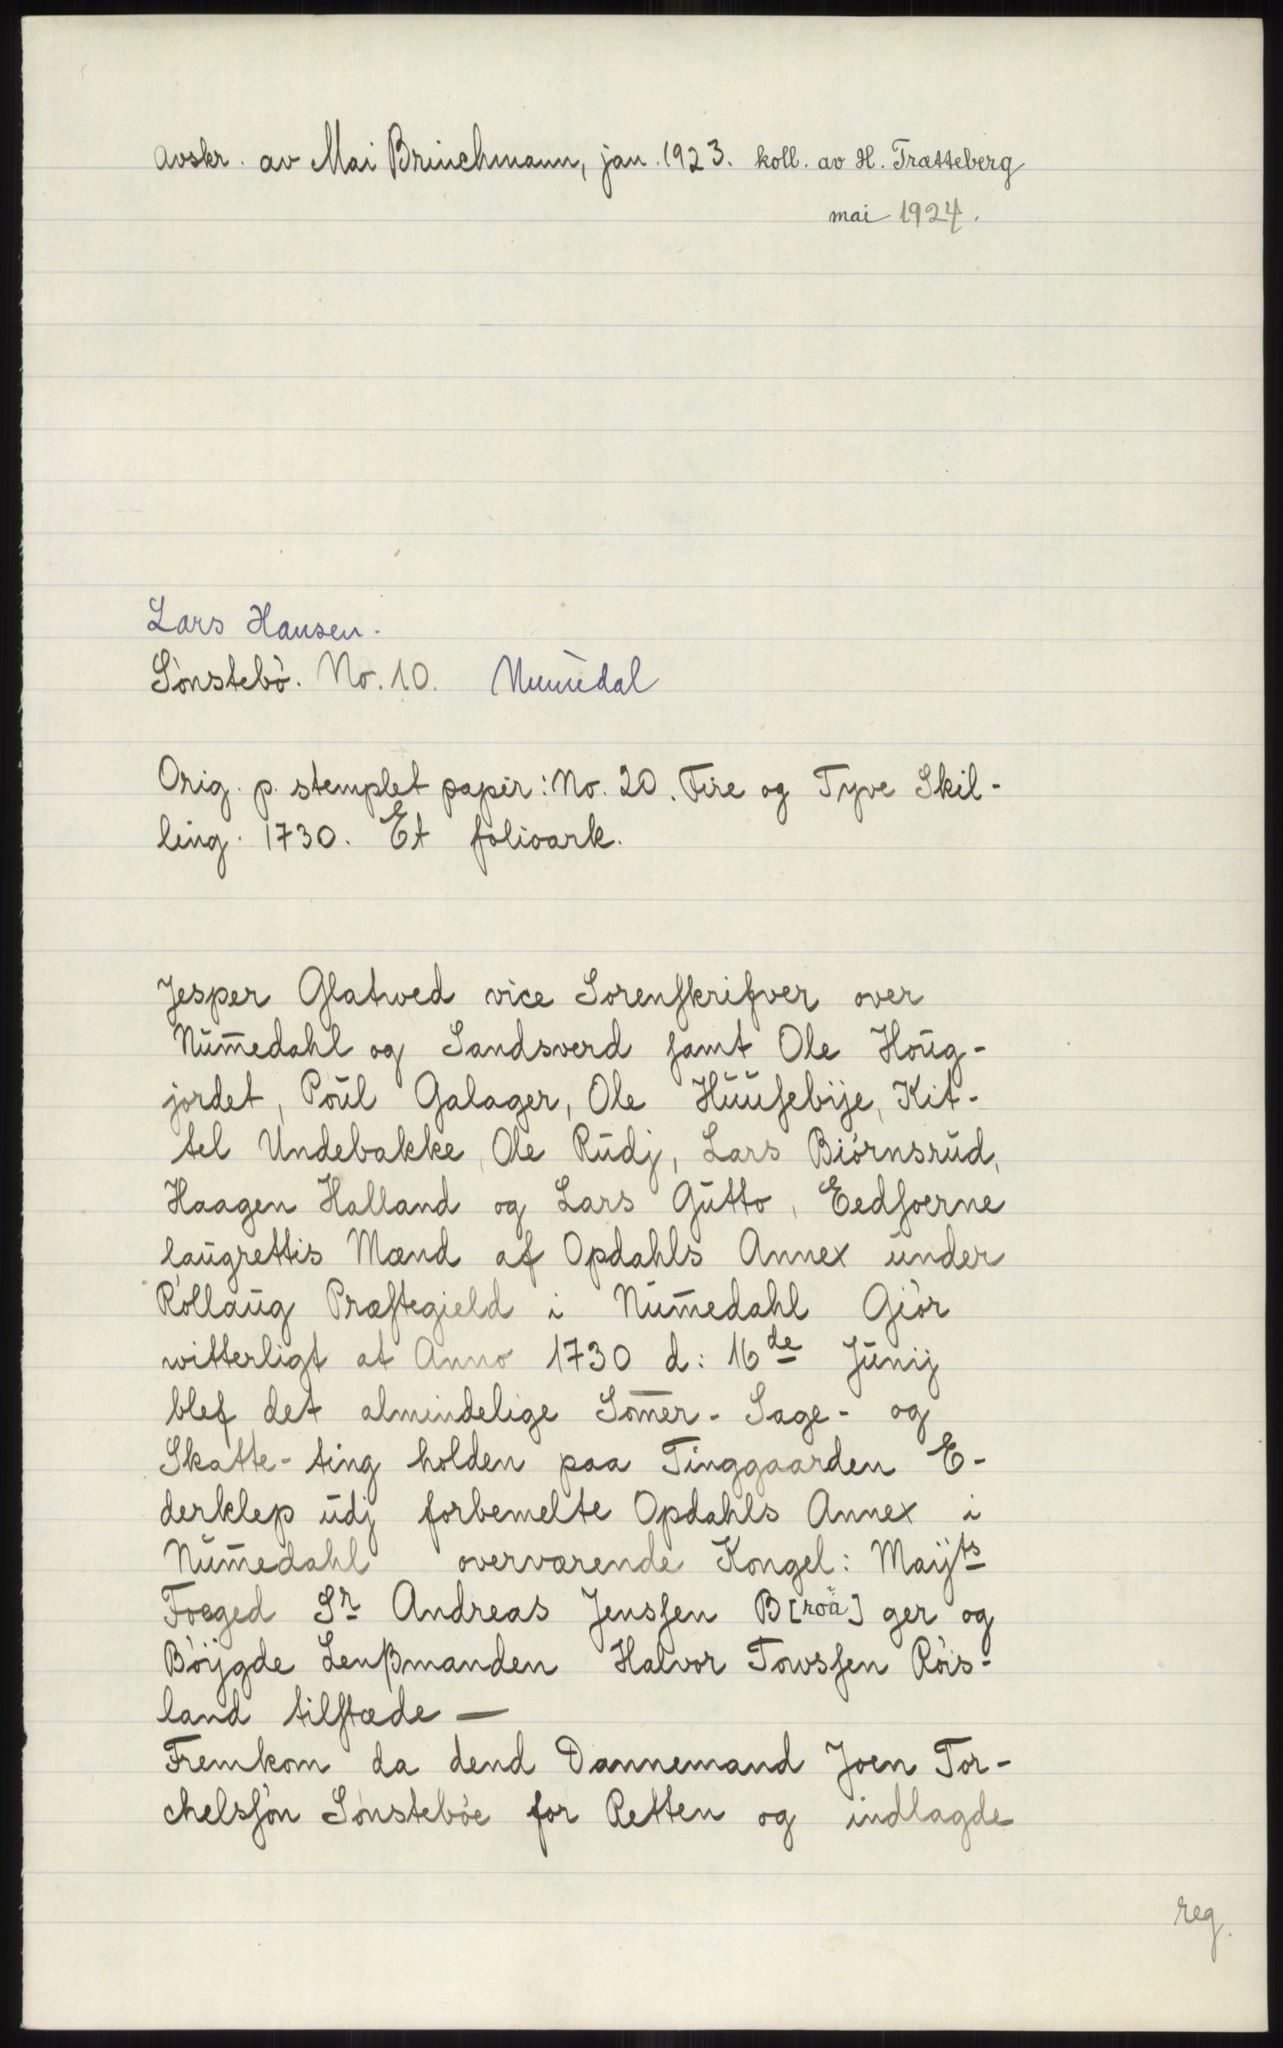 Avskr. av Mai Brinchmann, jan. 1923. koll. av H. Trætteberg
mai 1924.
Lars Hansen.
Sønstebø. No. 10. Numedal
Orig. p. stemplet papir: No. 20. Fire og Tyve Skil-
ling. 1730. Et folioark.
Jesper Glatved vice Sorenskrifver over
Num̄edahl og Sandsverd samt Ole Houg-
jordet, Poul Galager, Ole Huusebÿe, Kit-
tel Undebakke, Ole Rudj, Lars Biørnsrud,
Haagen Halland og Lars Gutto, Eedsoerne
laugrettis Mænd af Opdahls Annex under
Rollaug Præstegield i Num̄edahl Giør
witterligt at Anno 1730 d: 16de Junij
blef det almindelige Som̄er- Sage- og
Skatte-ting holden paa Tinggaarden E-
derklep udj forbemelte Opdahls Annex i
Num̄edahl overværende Kongel: Maijts
Foeged Sr Andreas Jenssen B[roa] ger og
Bøÿgde Lenßmanden Halvor Towssen Røis-
land tilstæde —
Fremkom da dend Dannemand Joen Tor-
chelssøn Sønstebøe for Retten og indlagde
reg.